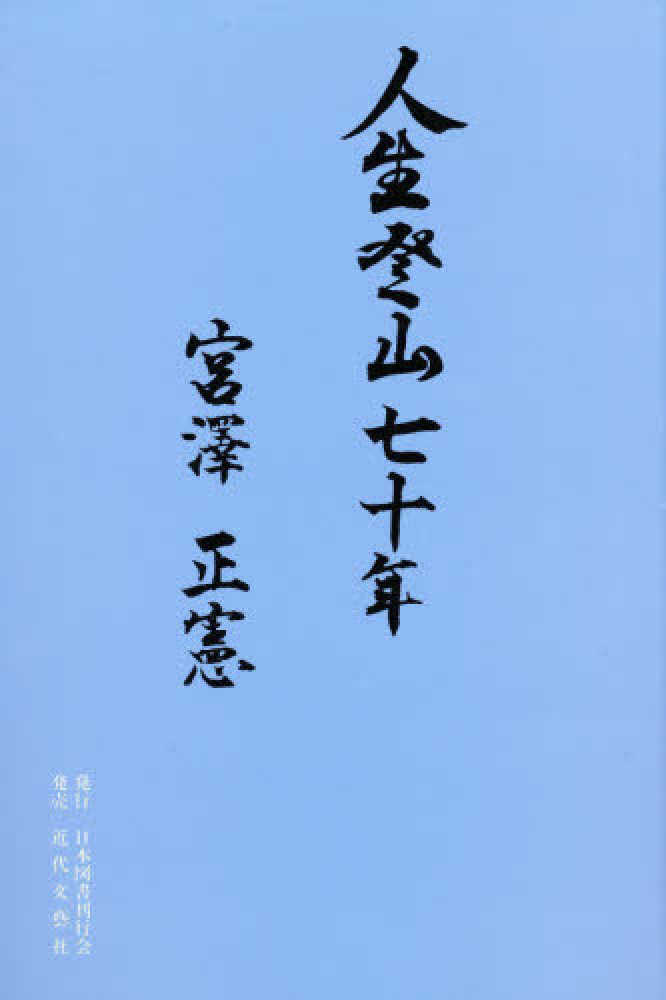 人生登山七十年
宮澤 正憲
発行 日本図書刊行会
発売 近代文藝社